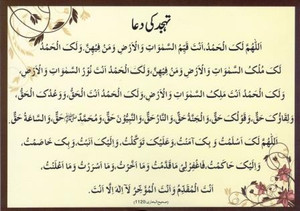 تہجد کی دعا
اَللّٰهُمَّ لَكَ الْحَمْدُ، اَنْتَ قَيِّمُ السَّمٰوَاتِ وَالْاَرْضِ وَمَنْ فِيْهِنَّ، وَلَكَ الْحَمْدُ
لَكَ مُلْكُ السَّمٰوَاتِ وَالْاَرْضِ وَمَنْ فِيْهِنَّ، وَلَكَ الْحَمْدُ اَنْتَ نُوْرُ السَّمٰوَاتِ وَالْاَرْضِ،
وَلَكَ الْحَمْدُ اَنْتَ مَلِكُ السَّمٰوَاتِ وَالْاَرْضِ، وَلَكَ الْحَمْدُ اَنْتَ الْحَقُّ، وَوَعْدُكَ الْحَقُّ،
وَلِقَاؤُكَ حَقٌّ، وَقَوْلُكَ حَقٌّ، وَالْجَنَّةُ حَقٌّ، وَالنَّارُ حَقٌّ، وَالنَّبِيُّوْنَ حَقٌّ، وَمُحَمَّدٌ حَقٌّ، وَالسَّاعَةُ حَقٌّ
اَللّٰهُمَّ لَكَ اَسْلَمْتُ، وَبِكَ اٰمَنْتُ، وَعَلَيْكَ تَوَكَّلْتُ، وَاِلَيْكَ اَنَبْتُ، وَبِكَ خَاصَمْتُ،
وَاِلَيْكَ حَاكَمْتُ، فَاغْفِرْلِيْ مَا قَدَّمْتُ وَمَا اَخَّرْتُ، وَمَا اَسْرَرْتُ وَمَا اَعْلَنْتُ،
اَنْتَ الْمُقَدِّمُ وَاَنْتَ الْمُؤَخِّرُ لَا اِلٰهَ اِلَّا اَنْتَ.
(صحیح البخاری: 1120)